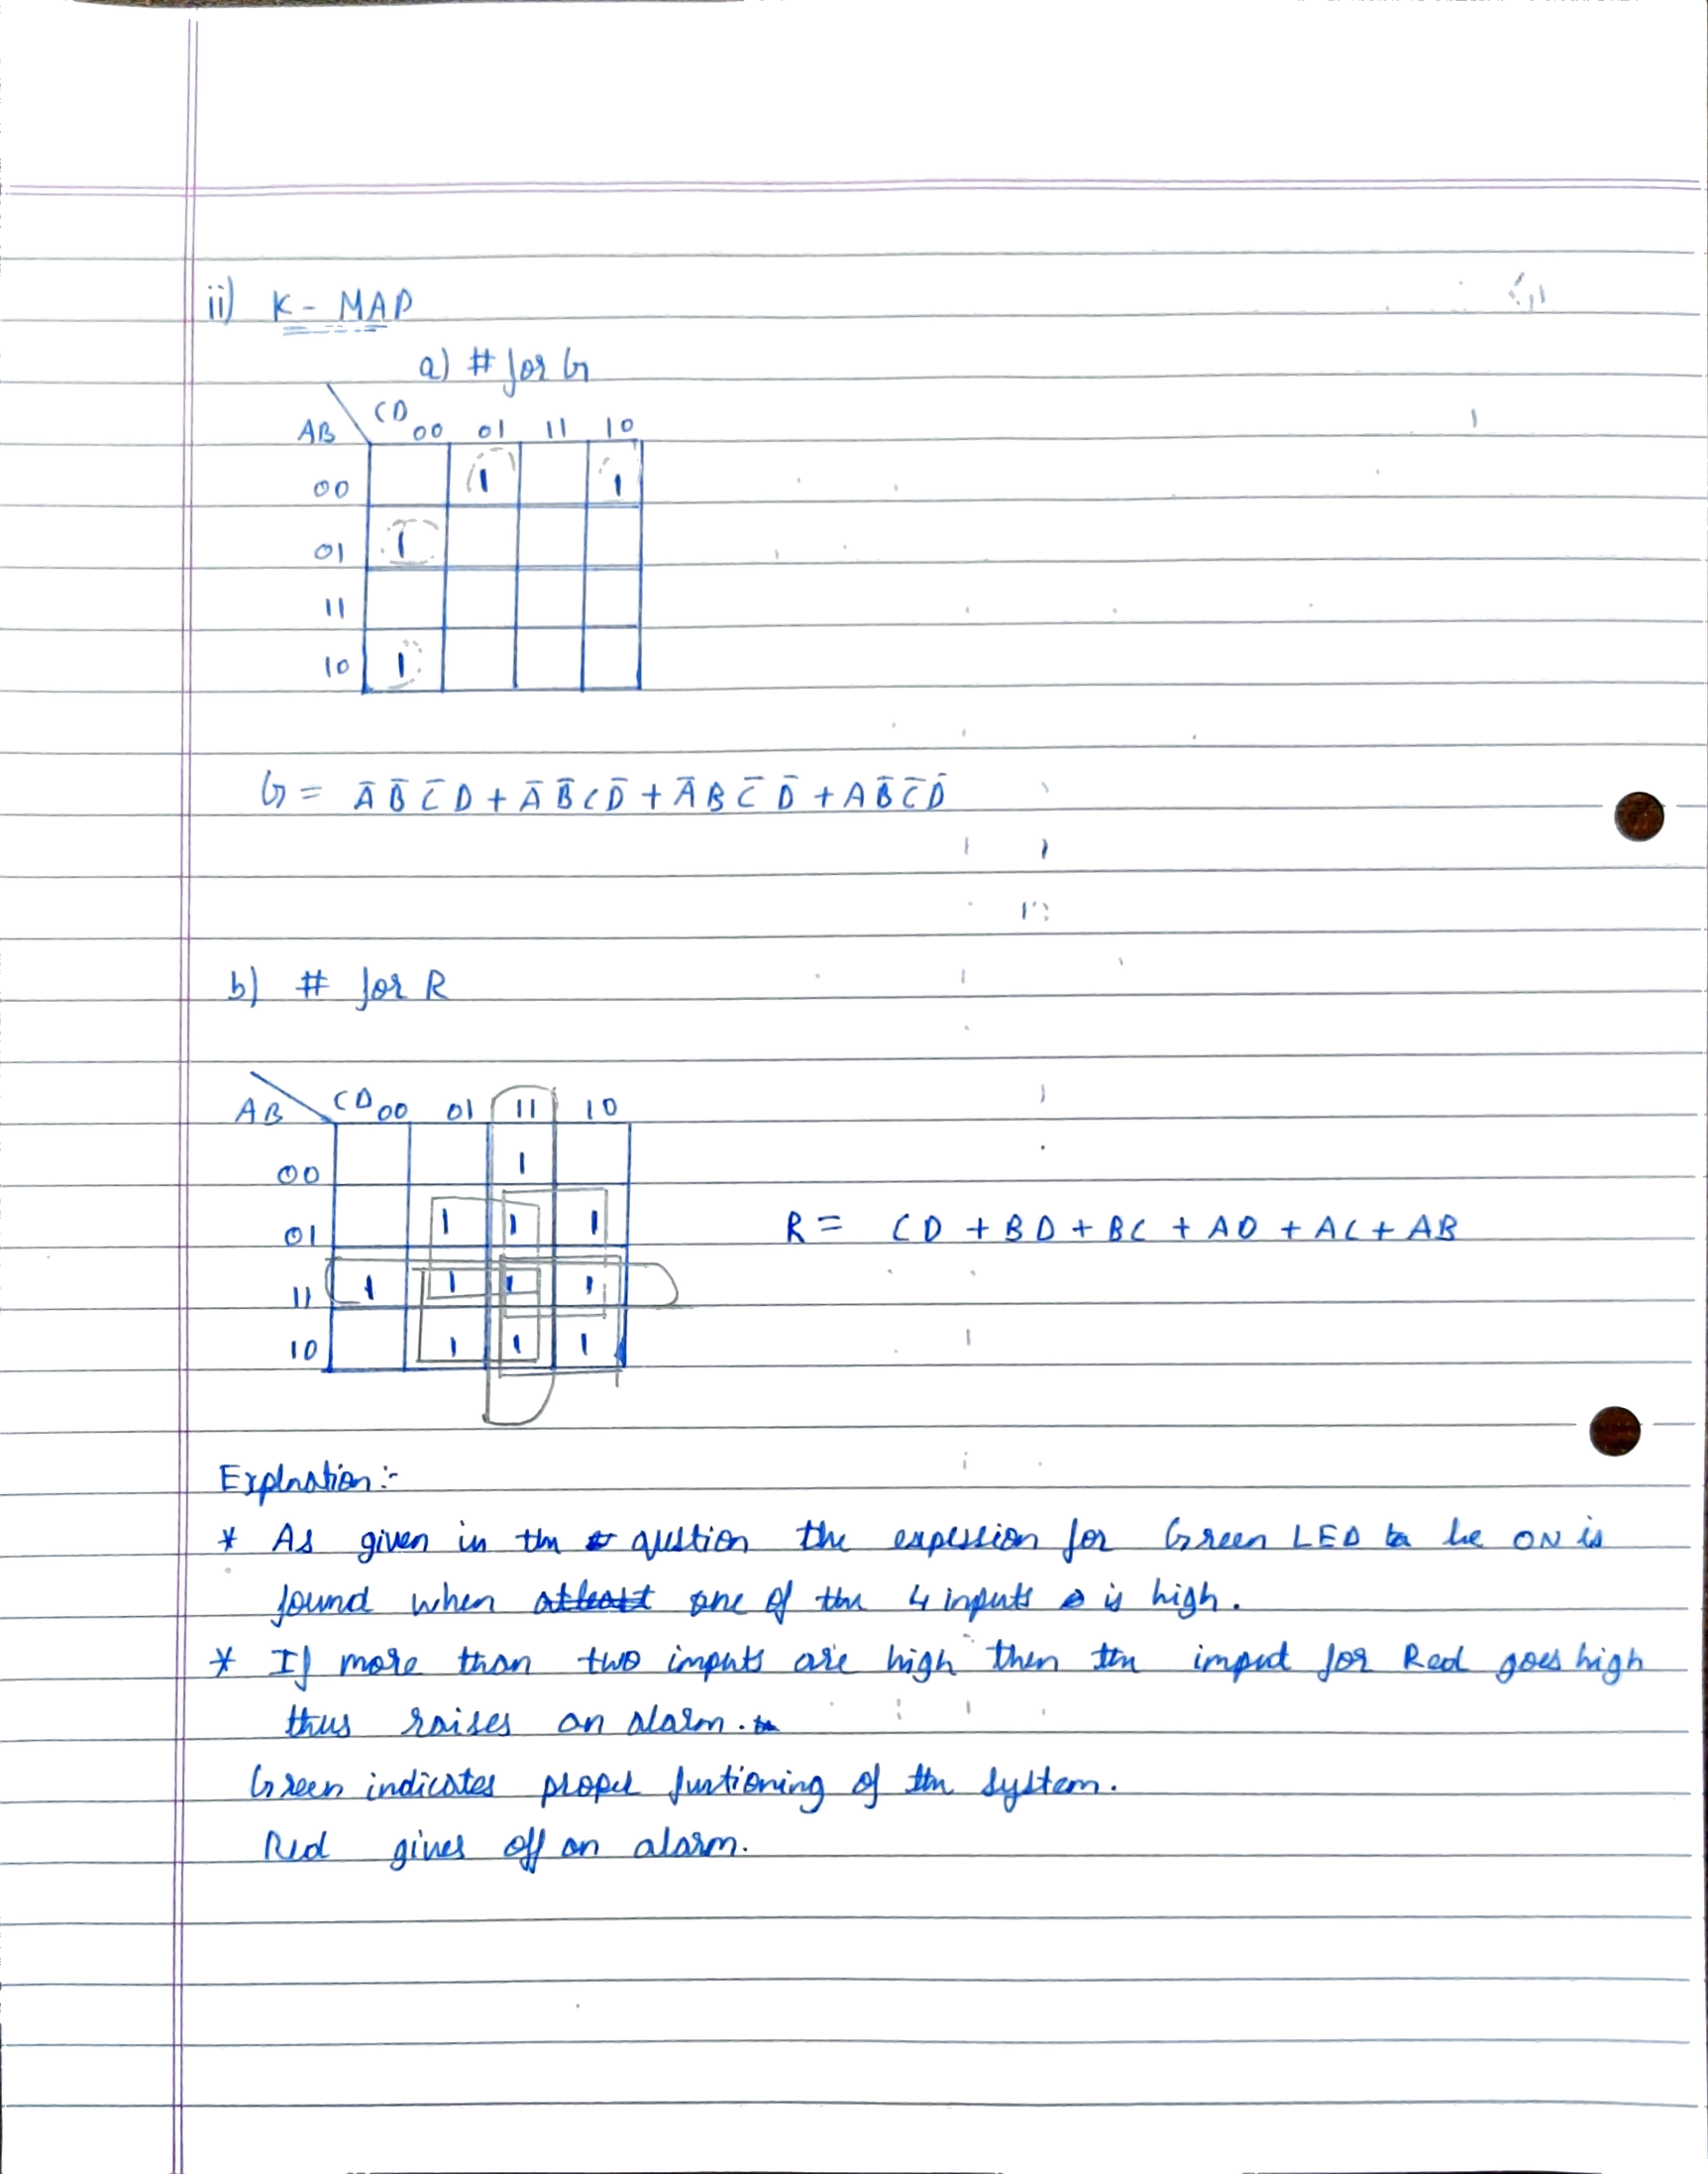 ii) K - MAP
a) # for G
AB CD 00 01 11 10
00 1 1
01 1
11
10 1
G = A̅ B̅ C̅ D + A̅ B̅ C D̅ + A̅ B C̅ D̅ + A B̅ C̅ D̅
b) # for R
AB CD 00 01 11 10
00 1
01 1 1 1
11 1 1 1 1
10 1 1 1
R = CD + BD + BC + AD + AC + AB
Explnation :-
* As given in the question the expession for Green LED to be ON is
found when atleast one of the 4 inputs is high.
* If more than two imputs are high then the imput for Red goes high
thus raises an alarm.
Green indicates proper funtioning of the system.
Red gives off an alarm.